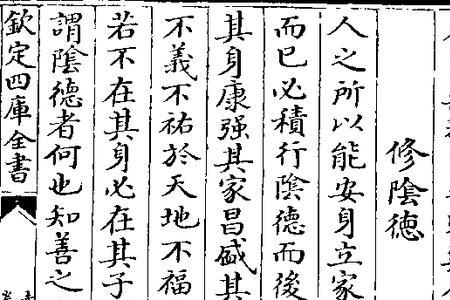 修陰德
人之所以能安身立家
而已必積行陰德而後
其身康强其家昌盛其
不義不祐於天地不福
若不在其身必在其子
謂陰德者何也知善之
欽定四庫全書